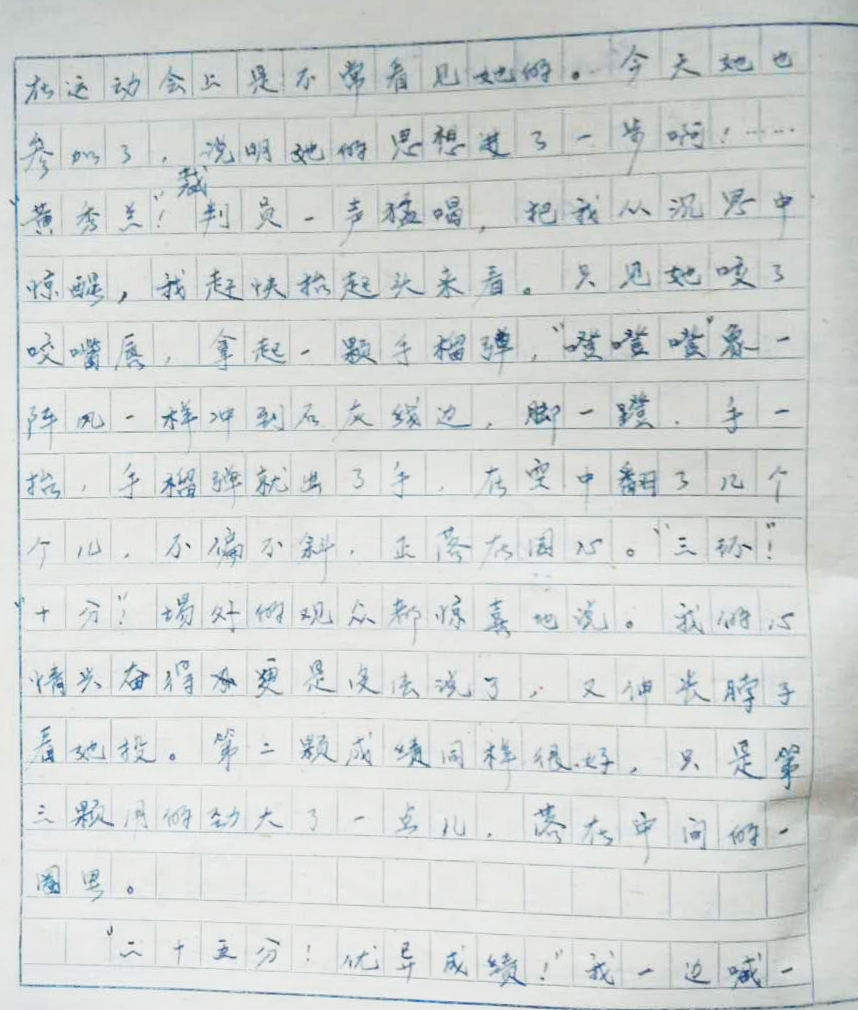 在运动会上是不常看见她的。今天她也
参加了，说明她的思想进了一步啊！……
“黄秀兰”！裁判员一声猛喝，把我从沉思中
惊醒，我赶快抬起头来看。只见她咬了
咬嘴唇，拿起一颗手榴弹，“噔噔噔”象一
阵风一样冲到石灰线边，脚一蹬，手一
抬，手榴弹就出了手，在空中翻了几个
个儿，不偏不斜，正落在圈心。“三环！
“十分”！场外的观众都惊喜地说。我的心
情兴奋得更是没法说了，又伸长脖子
看她投。第二颗成绩同样很好，只是第
三颗用的劲大了一点儿，落在中间的一
圈里。
“二十五分！优异成绩！”我一边喊一